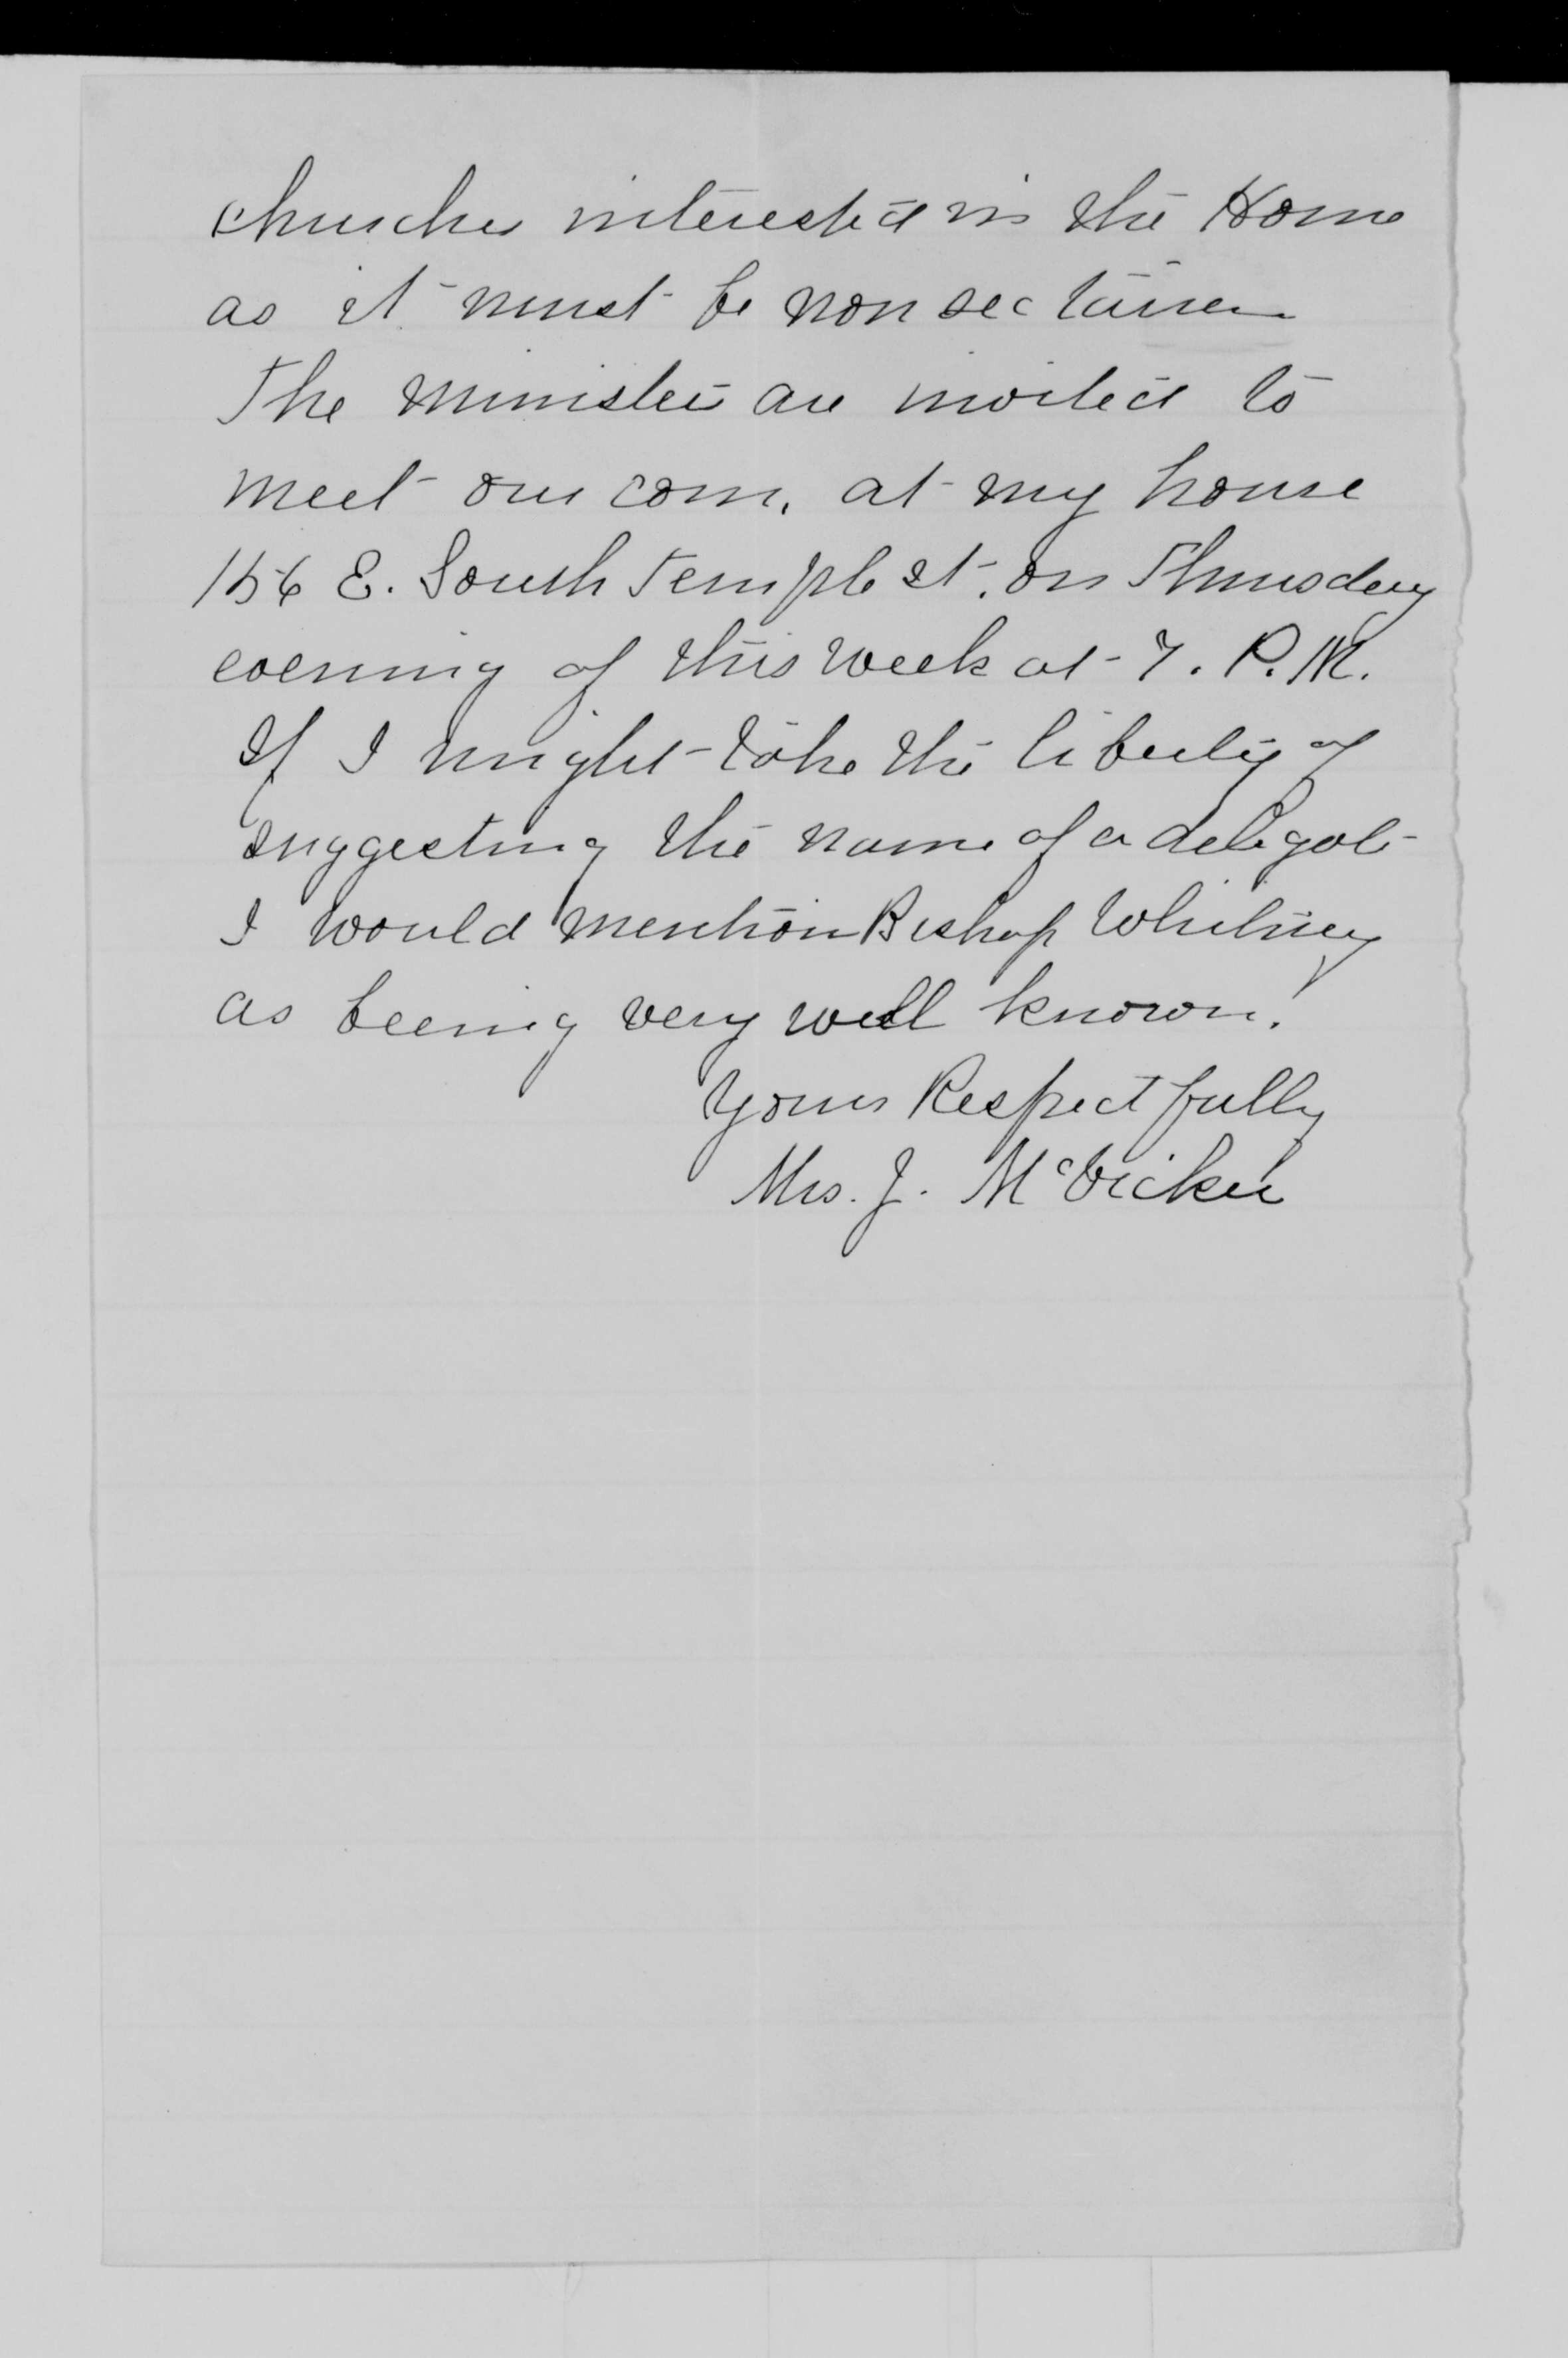 churches interested in the Home
as it must be non sectairen
The ministers are invited to
meet our com. at my house
156 E. South Temple st. on Thursday
evening of this week at 7. P.M.
If I might take the liberty of
suggesting the name of a delegate
I would mention Bishop Whitney
as beeing very well known.
Yours Respectfully
Mrs. J. McVicker